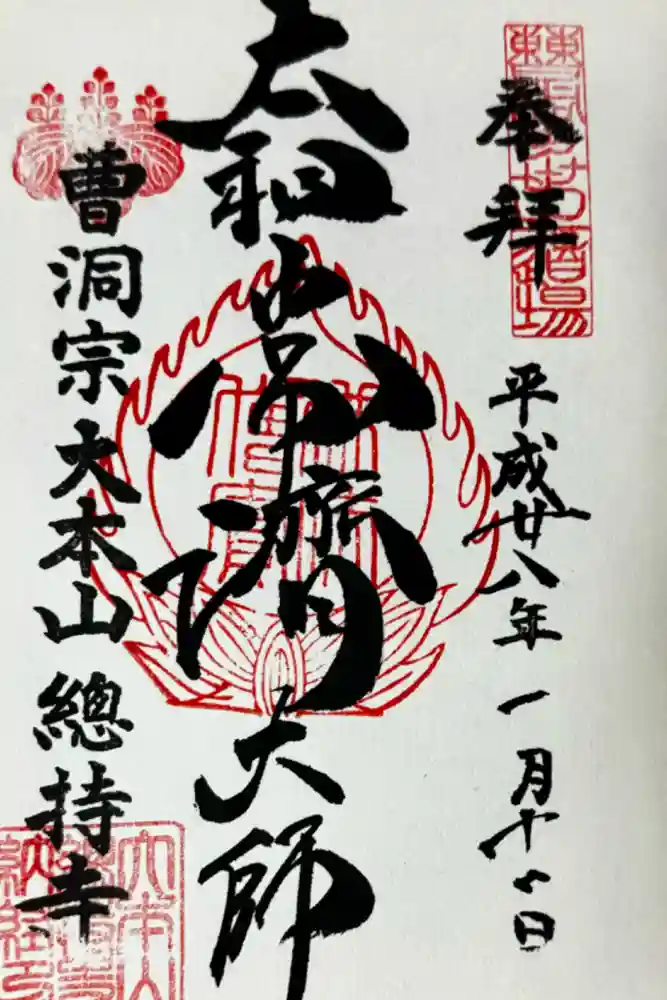 奉拝
平成廿八年一月十一日
太祖常濟大師
曹洞宗大本山總持寺
大本山